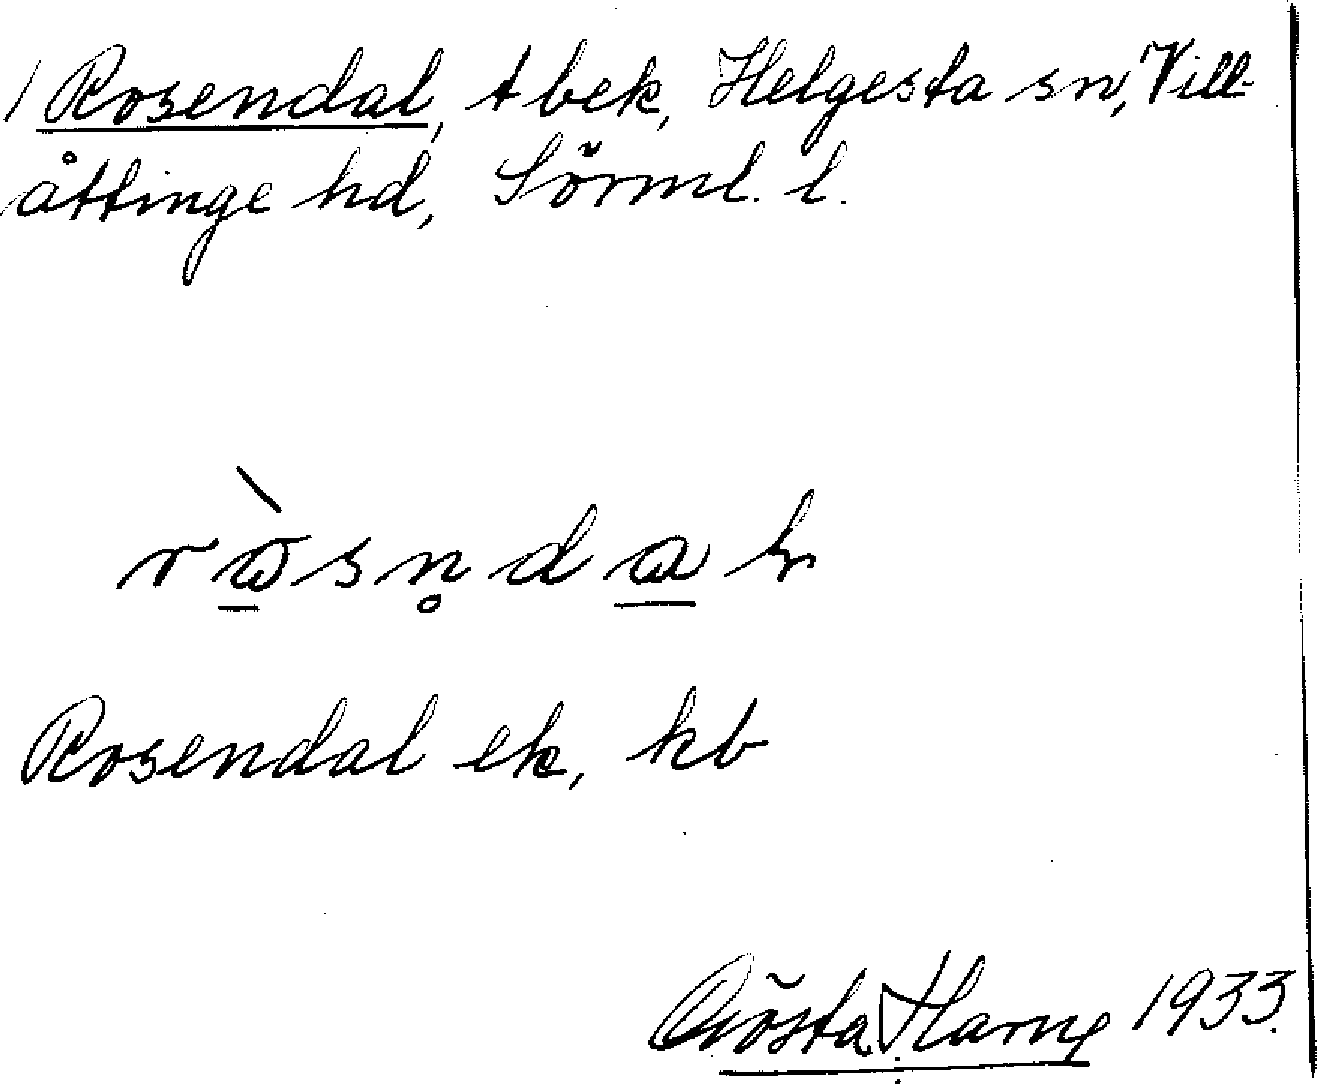 1 Rosendal, t bek, Helgesta sn, Vill-
åttinge hd, Sörml. l.
rò̱sn̥da̱l
Rosendal ek, kb
Gösta Harne 1933.